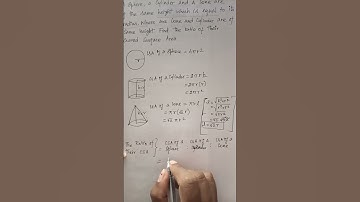 A Sphere, a Cylinder and A Cone are
the Same height which is equal to its
radius. Where are Cone and Cylinder are of
Same height. Find the Ratio of Their
Curved Surface Area
CSA of A Sphere = 4πr²
CSA of A Cylinder = 2πrh
= 2πr(r)
= 2πr²
CSA of A Cone = πrl
= πr(√2r)
= √2πr²
The Ratio of
Their CSA
CSA of A Sphere : CSA of A Cylinder : CSA of A Cone
=